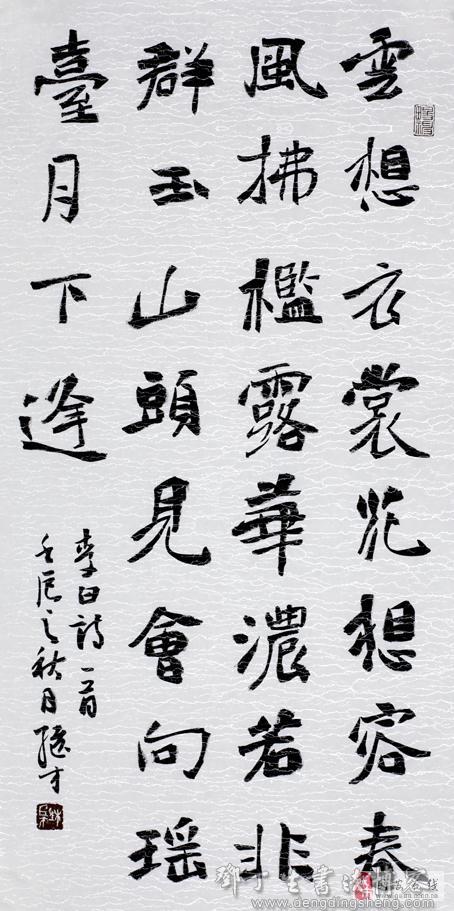 雲想衣裳花想容春
風拂檻露華濃若非
群玉山頭見會向瑶
臺月下逢
李白詩一首
壬辰之秋月
鄧丁生書法
www.dengdingsheng.com